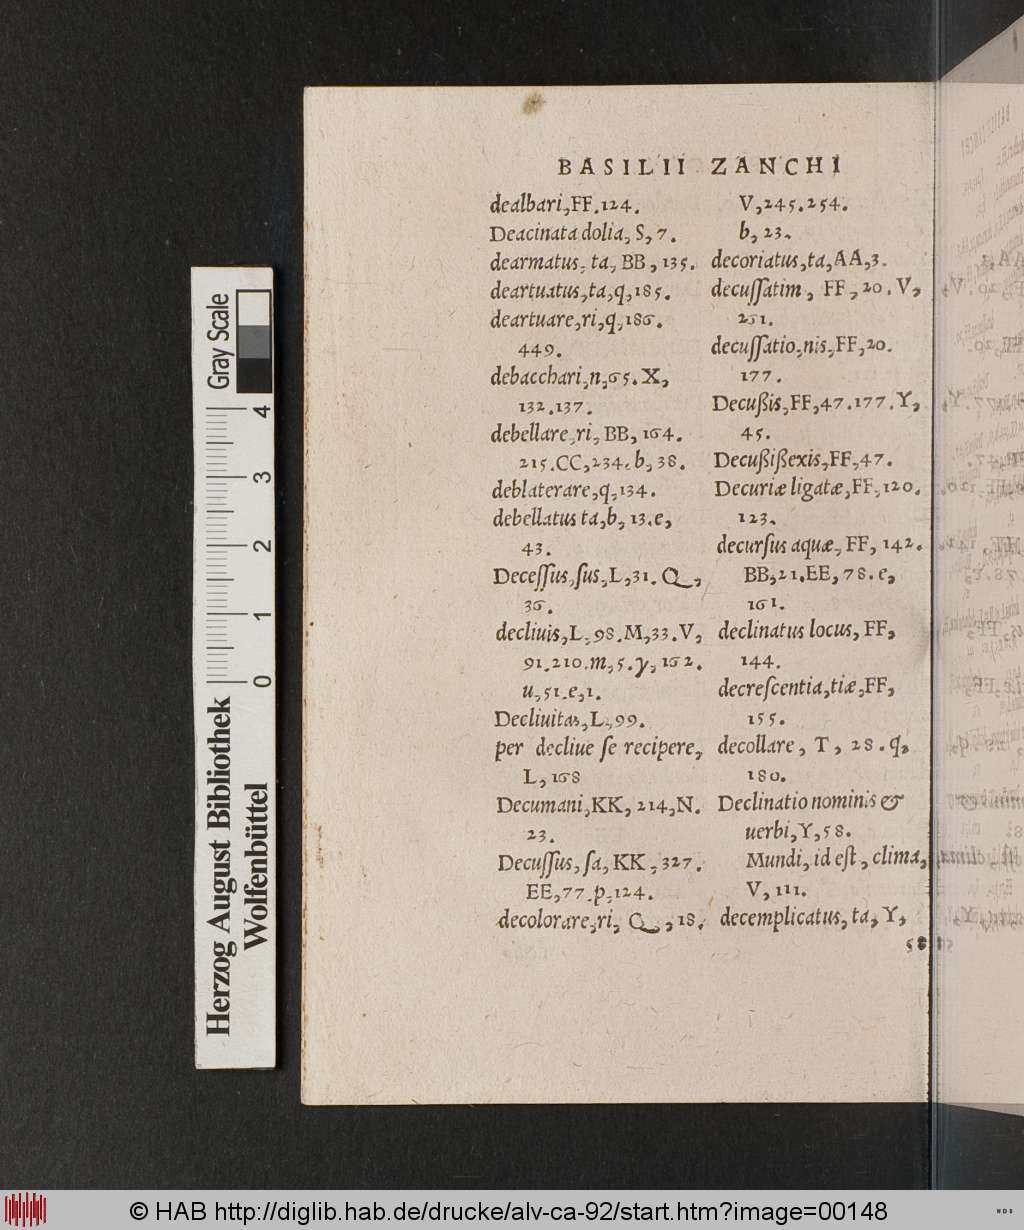 BASILII ZANCHI
dealbari, FF.124.
Deacinata dolia, S, 7.
dearmatus, ta, BB, 135.
deartuatus, ta, q, 185.
deartuare, ri, q, 186.
449.
debacchari, n, 65. X,
132.137.
debellare, ri, BB, 164.
215. CC, 234. b, 38.
deblaterare, q, 134.
debellatus ta, b, 13. e,
43.
Deceſſus, ſus, L, 31. Q,
36.
decliuis, L, 98. M, 33. V,
91.210. m, 5. y, 162.
u, 51. e, 1.
Decliuitas, L, 99.
per decliue ſe recipere,
L, 168
Decumani, KK, 214, N.
23.
Decuſſus, ſa, KK, 327.
EE, 77. p, 124.
decolorare, ri, Q, 18.
V, 245.254.
b, 23.
decoriatus, ta, AA, 3.
decuſſatim, FF, 20. V,
261.
decuſſatio, nis, FF, 20.
177.
Decußis, FF, 47.177. Y,
45.
Decußißexis, FF, 47.
Decuriæ ligatæ, FF, 120.
123.
decurſus aquæ, FF, 142.
BB, 21. EE, 78. e,
161.
declinatus locus, FF,
144.
decreſcentia, tiæ, FF,
155.
decollare, T, 28. q,
180.
Declinatio nominis &
uerbi, Y, 58.
Mundi, id eſt, clima,
V, 111.
decemplicatus, ta, Y,
Gray Scale
4
3
2
1
0
Herzog August Bibliothek
Wolfenbüttel
© HAB http://diglib.hab.de/drucke/alv-ca-92/start.htm?image=00148